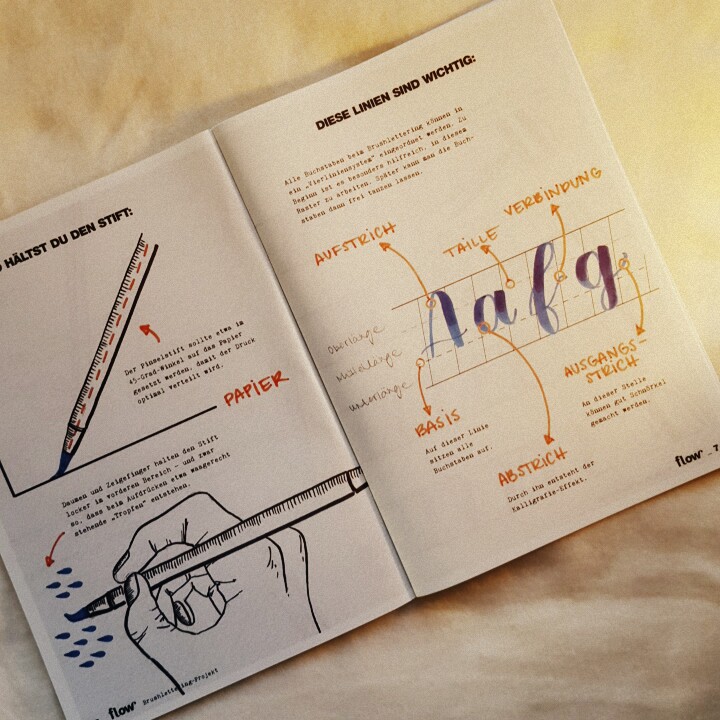 HÄLTST DU DEN STIFT:
Der Pinselstift sollte etwa im
45-Grad-Winkel auf das Papier
gesetzt werden, damit der Druck
optimal verteilt wird.
PAPIER
Daumen und Zeigefinger halten den Stift
locker im vorderen Bereich – und zwar
so, dass beim Aufdrücken etwa waagerecht
stehende „Tropfen" entstehen.
flow Brushlettering-Projekt
DIESE LINIEN SIND WICHTIG:
Alle Buchstaben beim Brushlettering können in
ein „Vierliniensystem" eingeordnet werden. Zu
Beginn ist es besonders hilfreich, in diesem
Raster zu arbeiten. Später kann man die Buch-
staben dann frei tanzen lassen.
AUFSTRICH
TAILLE
VERBINDUNG
A a f g
Oberlänge
Mittellänge
Unterlänge
BASIS
Auf dieser Linie
sitzen alle
Buchstaben auf.
ABSTRICH
Durch ihn entsteht der
Kalligrafie-Effekt.
AUSGANGS-
STRICH
An dieser Stelle
können gut Schnörkel
gemacht werden.
flow _ 7